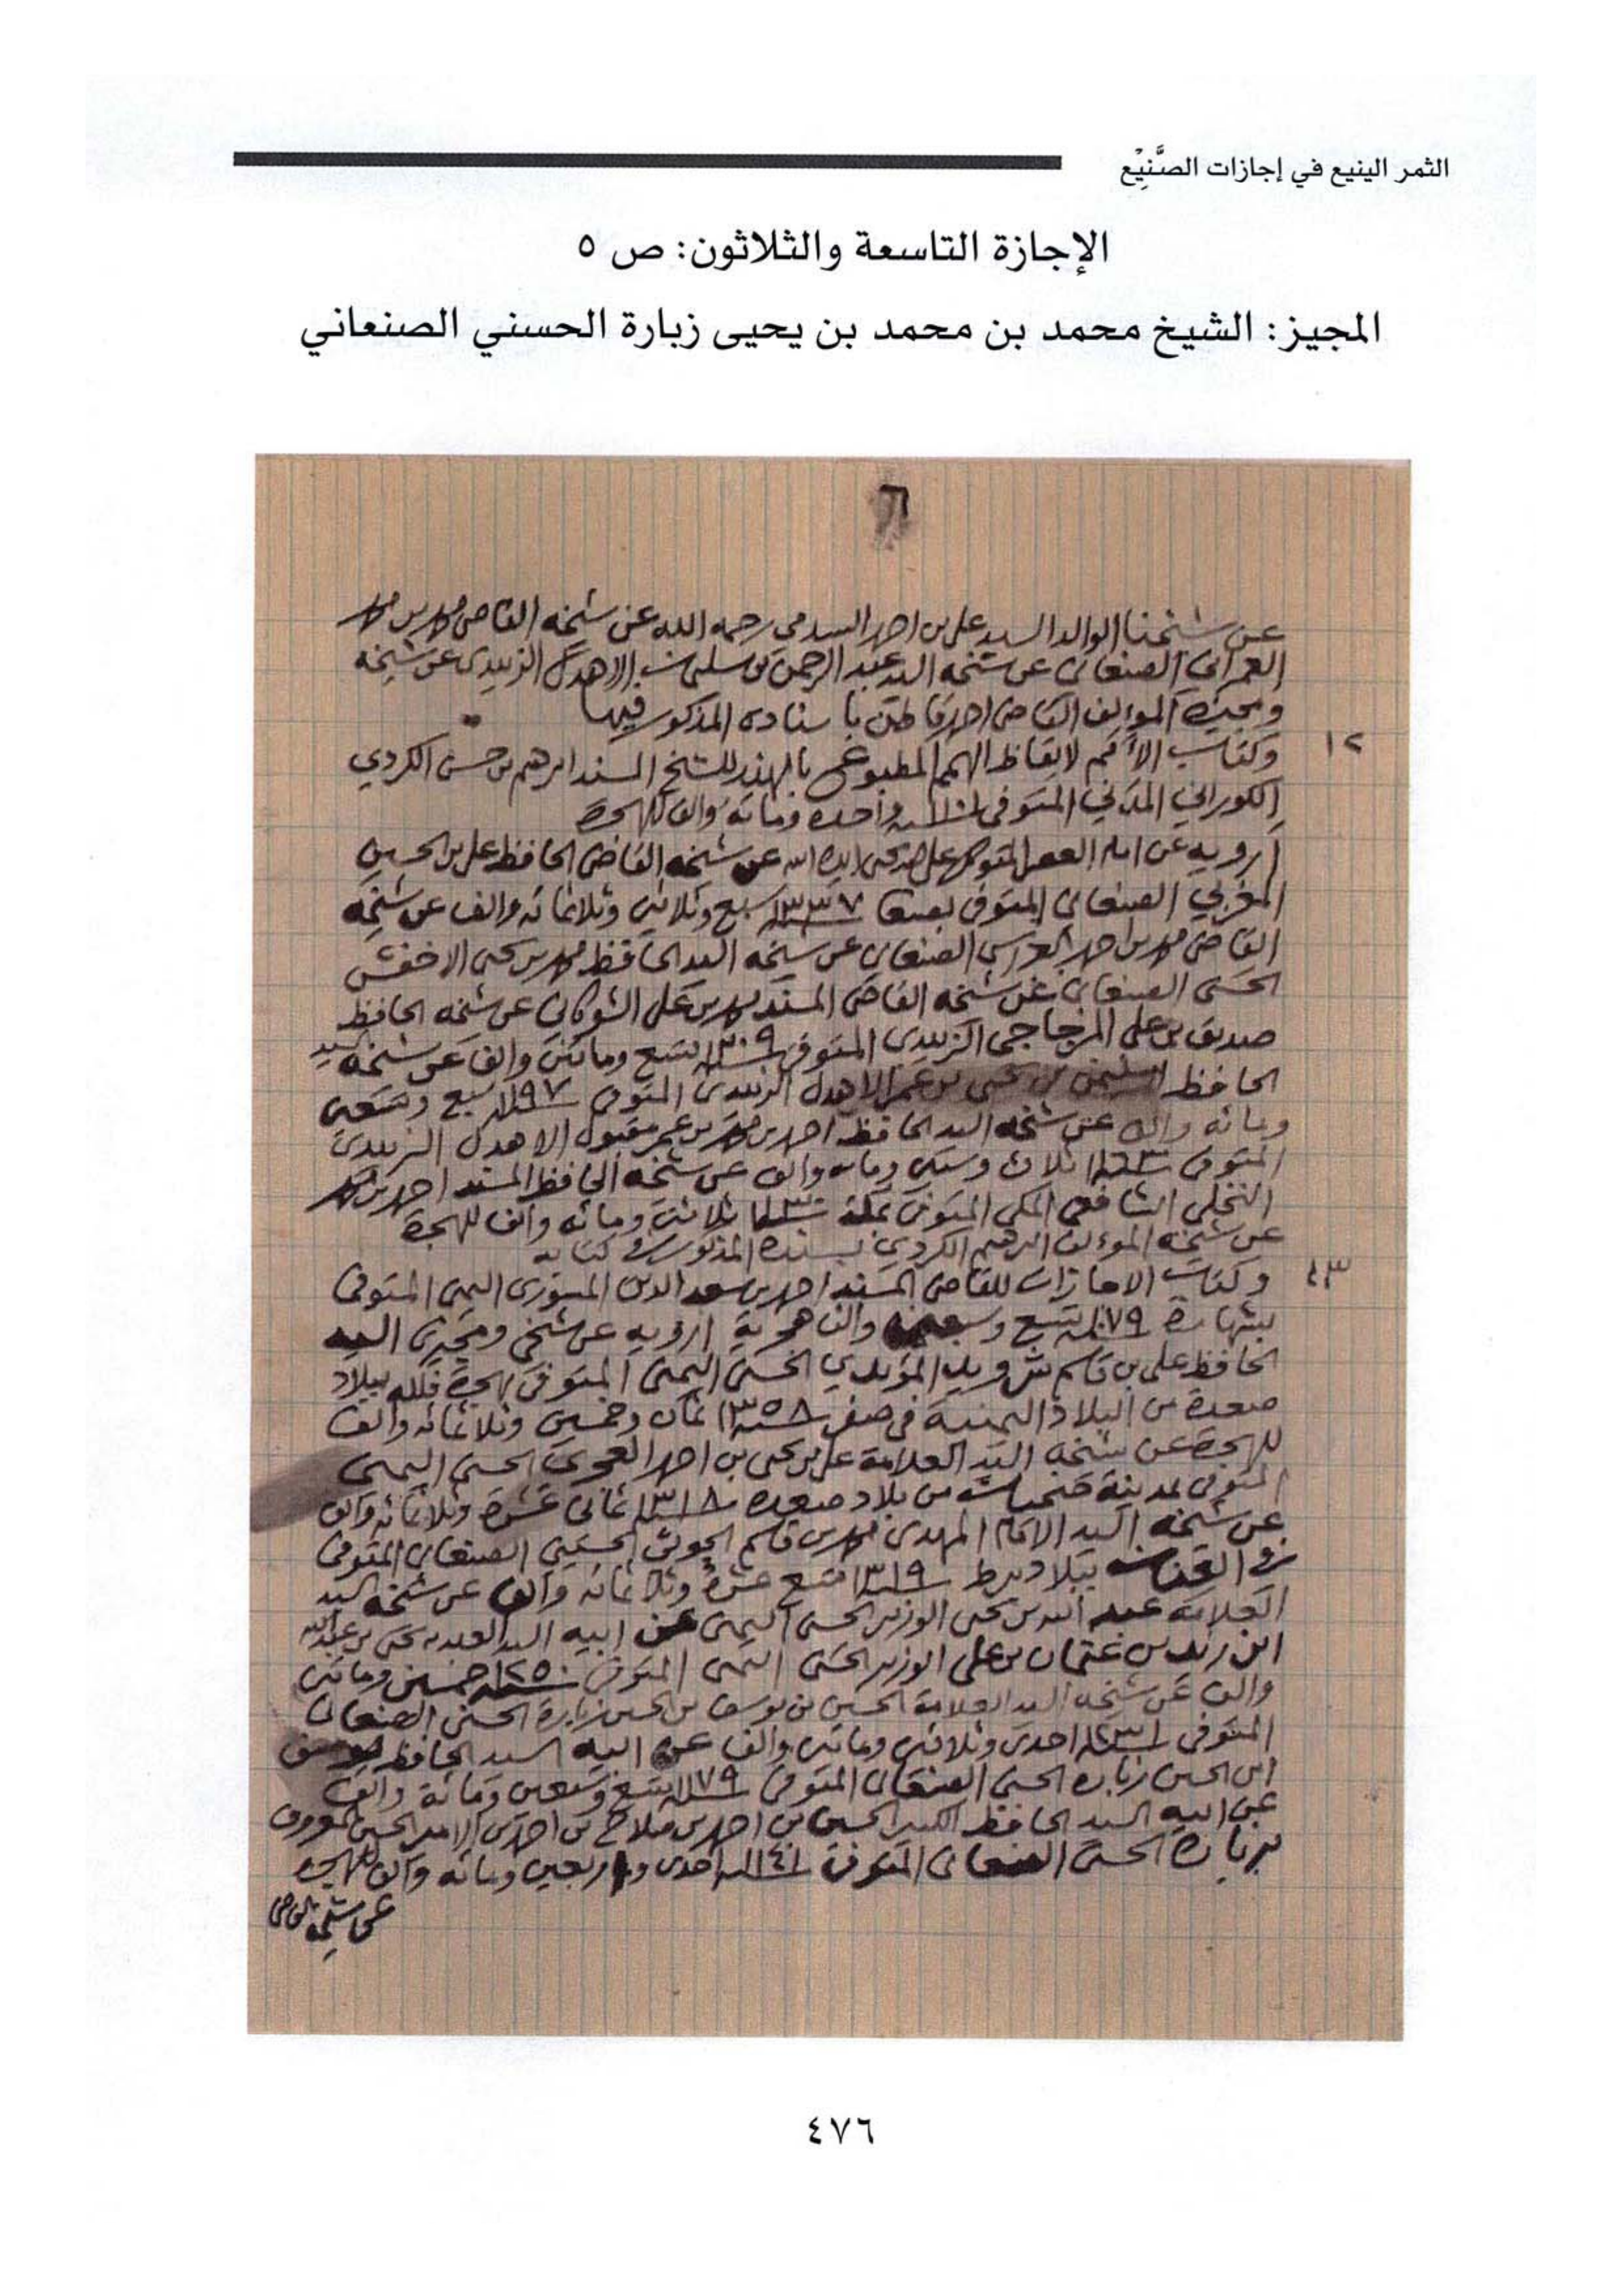 الثمر الينيع في إجازات الصَّنِيْع
الإجازة التاسعة والثلاثون: ص ٥
المجيز: الشيخ محمد بن محمد بن يحيى زبارة الحسني الصنعاني
٦
عن شيخنا الوالد السيد علي بن احمد السدمي رحمه الله عن شيخه القاضي محمد بن محمد
العمراني الصنعاني عن شيخه السيد عبد الرحمن بن سليمان الاهدل الزبيدي عن شيخه
ومجيزه المؤلف القاضي احمد قاطن باسناده المذكور فيها
١٢
وكتاب الأمم لايقاظ الهمم المطبوع بالهند للشيخ المسند ابرهيم بن حسن الكردي
الكوراني المدني المتوفى سنة ١١٠١ واحده ومائة والف للهجرة
أرويه عن امام العصر المتوكل على الله يحيى ايده الله عن شيخه القاضي الحافظ علي بن الحسين
المغربي الصنعاني المتوفى بصنعا سنة ١٣٣٧ سبع وثلاثين وثلاثمائه والف عن شيخه
القاضي محمد بن احمد العراسي الصنعاني عن شيخه السيد الحافظ محمد بن يحيى الاخفش
الحسني الصنعاني عن شيخه القاضي المسند محمد بن علي الشوكاني عن شيخه الحافظ
صديق بن علي المزجاجي الزبيدي المتوفى سنة ١٢٠٩ تسع ومائتين والف عن شيخه السيد
الحافظ سليمن بن يحيى بن عمر الاهدل الزبيدي المتوفى سنة ١١٩٧ سبع وتسعين
ومائه والف عن شيخه السيد الحافظ احمد بن محمد بن عمر مقبول الاهدل الزبيدي
المتوفى سنة ١١٦٣ ثلاث وستين ومائه والف عن شيخه الحافظ المسند احمد بن محمد
النخلي الشافعي المكي المتوفى بمكة سنة ١١٣٠ ثلاثين ومائه والف للهجرة
عن شيخه المؤلف ابرهيم الكردي بسنده المذكور في كتابه
١٣
وكتاب الاجازات للقاضي المسند احمد بن سعد الدين المسوري اليمني المتوفى
بشهارة سنة ١٠٧٩ تسع وسبعين والف هجرية أرويه عن شيخي ومجيزي السيد
الحافظ علي بن قاسم شرويد المؤيدي الحسني اليمني المتوفى بهجرة فلله ببلاد
صعدة من البلاد اليمنية في صفر سنة ١٣٥٨ ثمان وخمسين وثلاثمائه والف
للهجرة عن شيخه السيد العلامة علي بن يحيى بن احمد العجري الحسني اليمني
المتوفى بمدينة ضحيان من بلاد صعده سنة ١٣١٨ ثماني عشرة وثلاثمائه والف
عن شيخه السيد الامام المهدي محمد بن قاسم الحوثي الحسيني الصنعاني المتوفى
في ببلاد برط سنة ١٣١٩ تسع عشرة وثلاثمائه والف عن شيخه السيد
العلامة عبد الله بن يحيى الوزير الحسني اليمني عن ابيه السيد العلامه يحيى بن عبدالله
ابن زيد بن عثمان بن علي الوزير الحسني اليمني المتوفى سنة ١٢٥٠ خمسين ومائتين
والف عن شيخه السيد العلامة الحسين بن يوسف بن الحسين زبارة الحسني الصنعاني
المتوفى سنة ١٢٣١ احدى وثلاثين ومائتين والف عن ابيه السيد الحافظ يوسف
ابن الحسين زبارة الحسني الصنعاني المتوفى سنة ١١٧٩ تسع وسبعين ومائة والف
عن ابيه السيد الحافظ الكبير الحسين بن احمد بن صلاح بن احمد بن الامير الحسين المعروف
بزبارة الحسني الصنعاني المتوفى سنة ١١٤١ احدى واربعين ومائه والف للهجرة
عن شيخه القاضي
٤٧٦